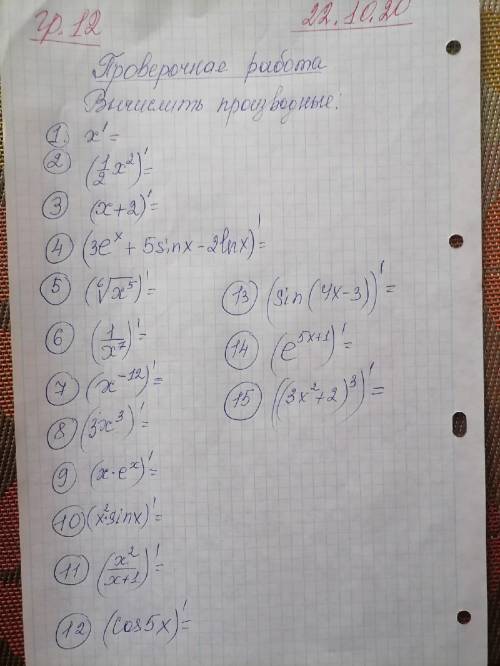 гр.12
22.10.20
Проверочная работа
Вычислить производные:
1. x' =
2 (1/2 x²)' =
3 (x+2)' =
4 (3eˣ + 5sinx - 2lnx)' =
5 (⁶√x⁵)' =
6 (1/x⁷)' =
7 (x⁻¹²)' =
8 (3x³)' =
9 (x·eˣ)' =
10 (x²·sinx)' =
11 (x²/x+1)' =
12 (cos5x)' =
13 (sin(4x-3))' =
14 (e⁵ˣ⁺¹)' =
15 ((3x²+2)³)' =